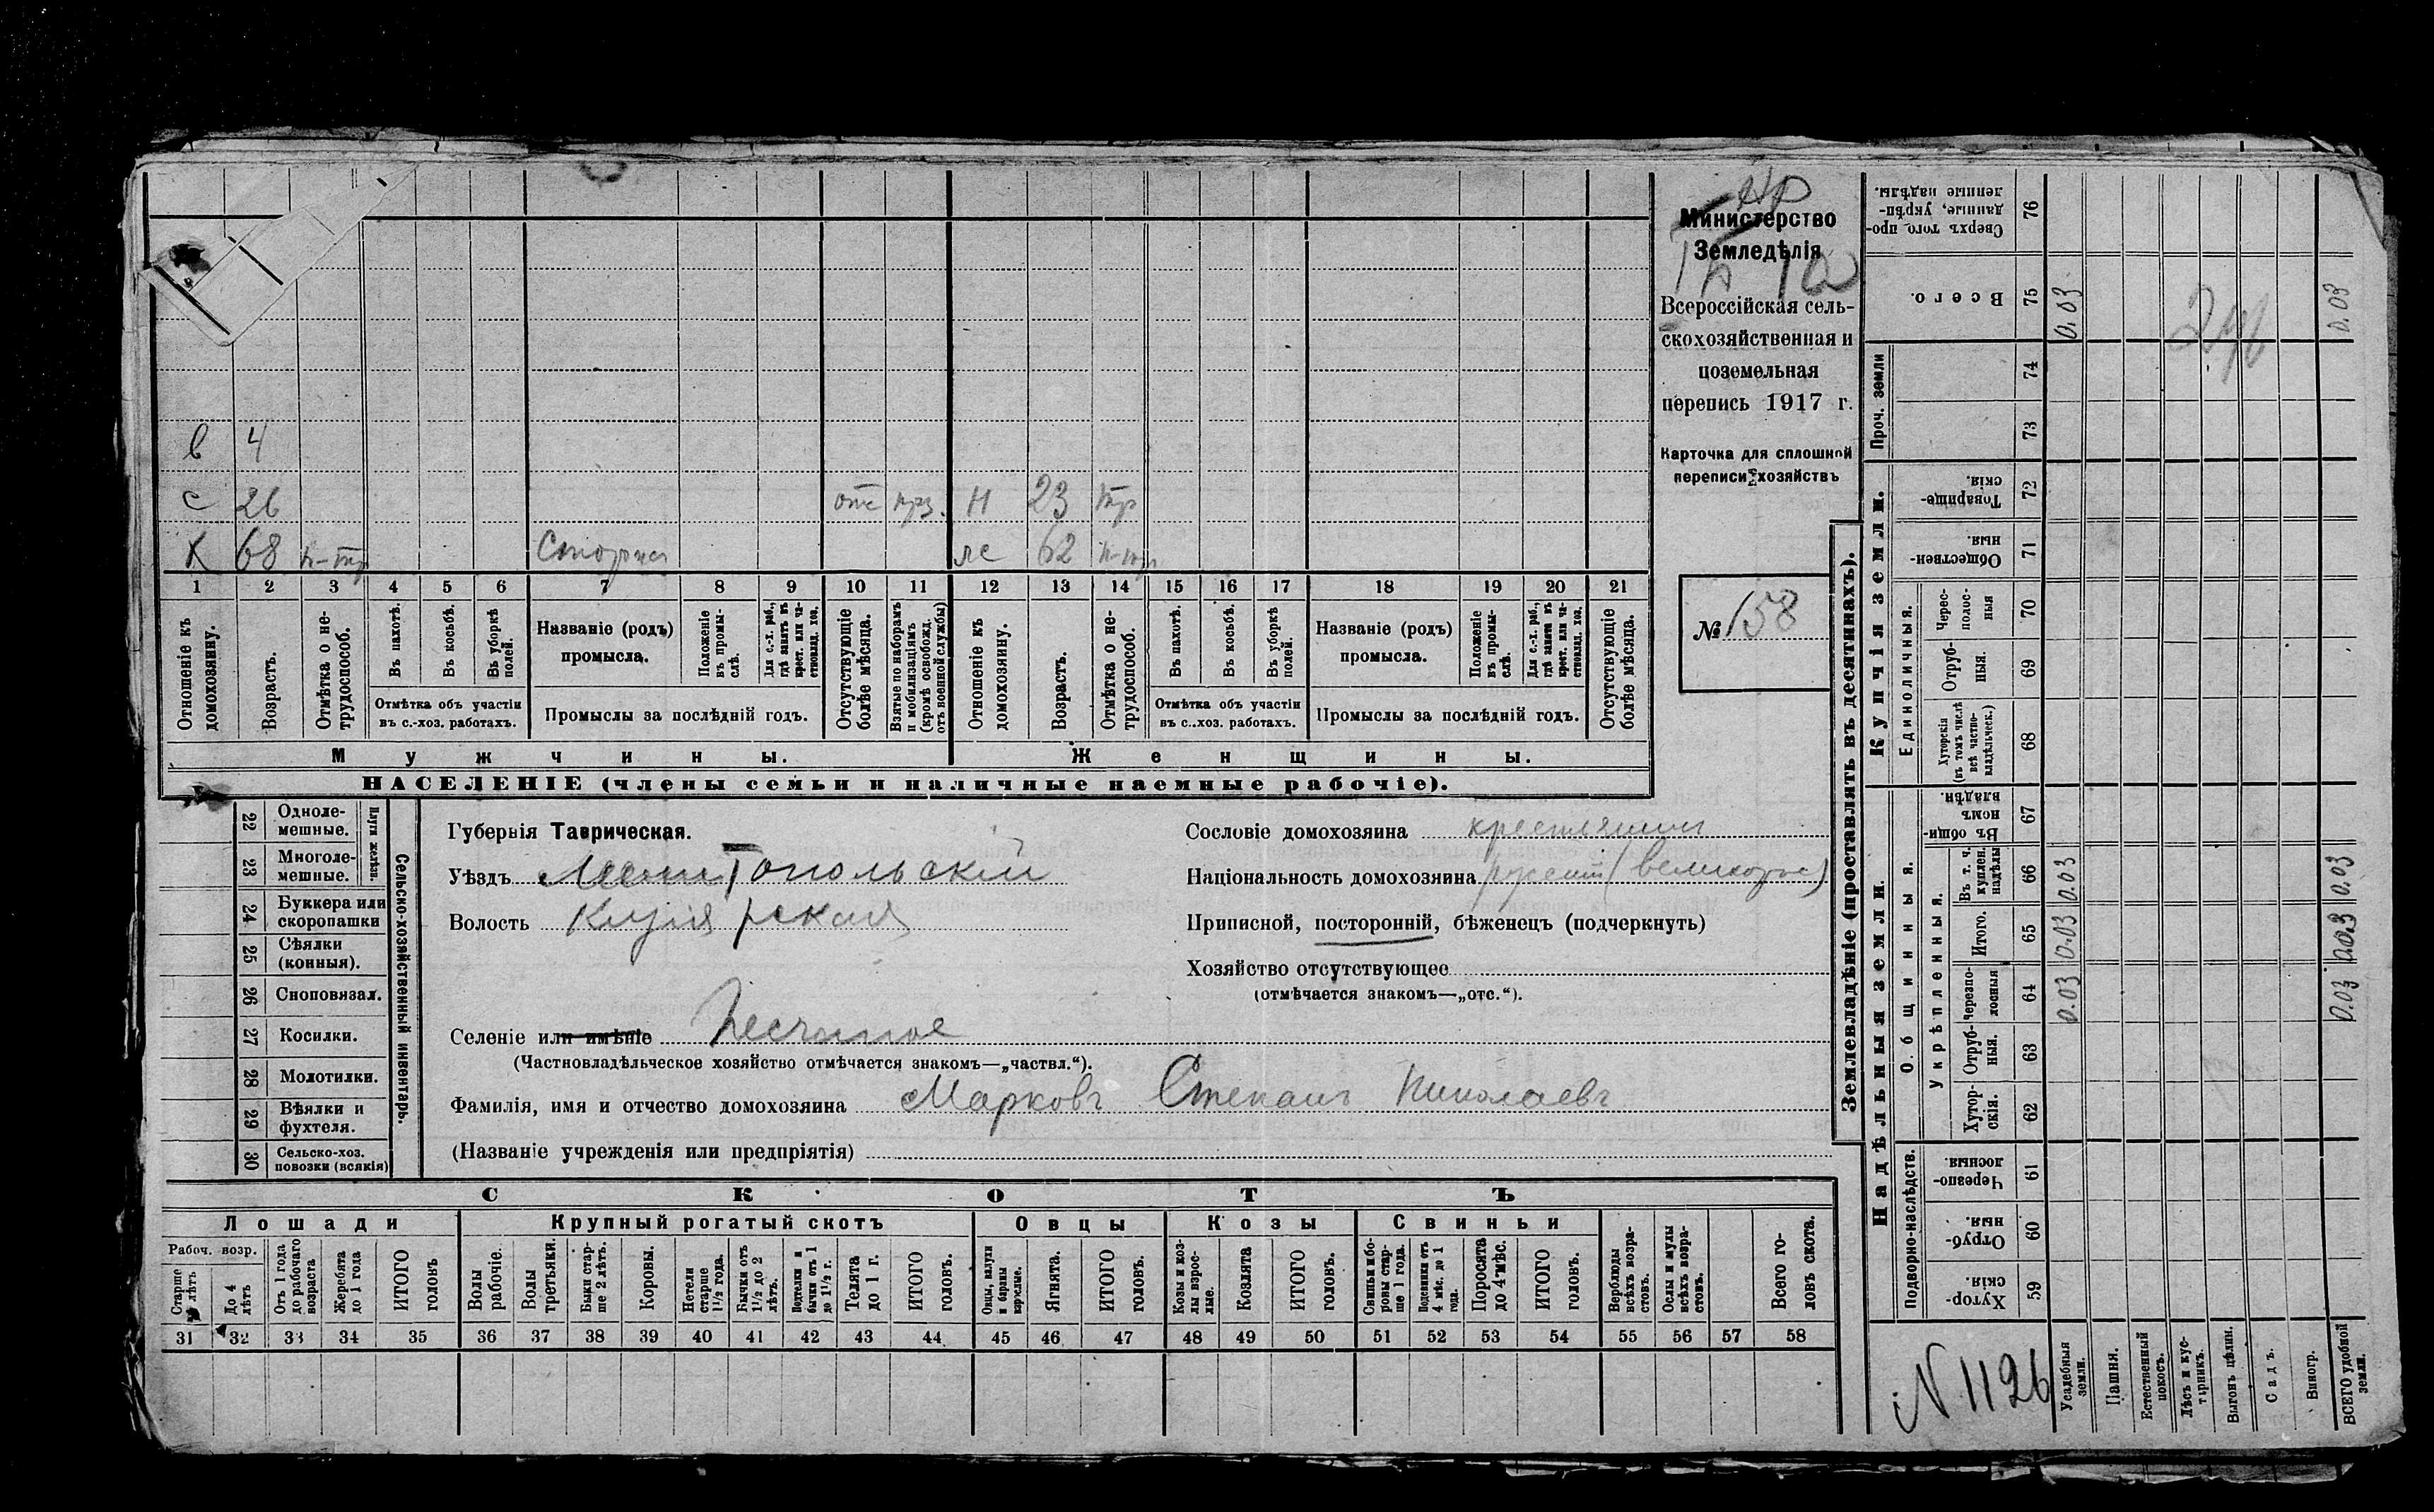 Министерство
Земледѣлія
Всероссійская сель-
скохозяйственная и
поземельная
перепись 1917 г.
Карточка для сплошной
переписи хозяйствъ
№ 158
в 4
с 26 отс Н 23
Х 68 62
1 2 3 4 5 6 7 8 9 10 11 12 13 14 15 16 17 18 19 20 21
Отношеніе къ домохозяину.
Возрастъ.
Отмѣтка о не-трудоспособ.
Въ пахотѣ.
Въ косьбѣ.
Въ уборкѣ полей.
Отмѣтка объ участіи
въ с.-хоз. работахъ.
Названіе (родъ)
промысла.
Положеніе въ промы-слѣ.
Для с.-х. раб., гдѣ занятъ въ крест. или ча-стновлад. хоз.
Промыслы за послѣдній годъ.
Отсутствующіе болѣе мѣсяца.
Взятые по наборамъ и мобилизаціямъ (кромѣ освобожд. отъ военной службы)
Отношеніе къ домохозяину.
Возрастъ.
Отмѣтка о не-трудоспособ.
Въ пахотѣ.
Въ косьбѣ.
Въ уборкѣ полей.
Отмѣтка объ участіи
въ с..-хоз. работахъ.
Названіе (родъ)
промысла.
Положеніе въ промы-слѣ.
Для с.-х. раб., гдѣ занята въ крест. или ча-стновлад. хоз.
Промыслы за послѣдній годъ.
Отсутствующіе болѣе мѣсяца.
Мужчины.
Женщины.
НАСЕЛЕНІЕ (члены семьи и наличные наемные рабочіе).
22 Одноле-мешные.
23 Многоле-мешные.
Плуги желѣзн.
24 Буккера или скоропашки
25 Сѣялки (конныя).
26 Сноповязал.
27 Косилки.
28 Молотилки.
29 Вѣялки и фухтеля.
30 Сельско-хоз. повозки (всякія)
Сельско-хозяйственный инвентарь.
Губернія Таврическая.
Уѣздъ Мелитопольскій
Волость
Селеніе или имѣніе Песчаное
(Частновладѣльческое хозяйство отмѣчается знакомъ—„частвл.“).
Фамилія, имя и отчество домохозяина Марковъ Степанъ Николаевъ
(Названіе учрежденія или предпріятія)
Сословіе домохозяина крестьянинъ
Національность домохозяина русскій (великорос)
Приписной, посторонній, бѣженецъ (подчеркнуть)
Хозяйство отсутствующее
(отмѣчается знакомъ—„отс.“).
СКОТЪ
Лошади
Крупный рогатый скотъ
Овцы
Козы
Свиньи
Рабоч. возр.
Старше лѣтъ
До 4 лѣтъ
Отъ 1 года до рабочаго возраста
Жеребята до 1 года
ИТОГО головъ
Волы рабочіе.
Волы третьяки.
Быки стар-ше 2 лѣтъ.
Коровы.
Нетели старше 1½ года.
Бычки отъ 1½ до 2 лѣтъ.
Подтелки и бычки отъ 1 до 1½ г.
Телята до 1 г.
ИТОГО головъ.
Овцы, валухи и бараны взрослые.
Ягнята.
ИТОГО головъ.
Козы и коз-лы взрос-лые.
Козлята
ИТОГО головъ.
Свиньи и бо-ровы стар-ше 1 года.
Подсвинки отъ 4 мѣс. до 1 года.
Поросята до 4 мѣс.
ИТОГО головъ.
Верблюды всѣхъ возра-стовъ.
Ослы и мулы всѣхъ возра-стовъ.
Всего го-ловъ скота.
31 32 33 34 35 36 37 38 39 40 41 42 43 44 45 46 47 48 49 50 51 52 53 54 55 56 57 58
Землевладѣніе (проставлять въ десятинахъ).
Надѣльныя земли.
Купчія земли.
Проч. земли
Подворно-наслѣдств.
Общинныя.
Укрѣпленныя.
Единоличныя.
59 Хутор-скія.
60 Отруб-ныя.
61 Черезпо-лосныя.
62 Хутор-скія.
63 Отруб-ныя.
64 Черезпо-лосныя 0.03 0.03
65 Итого. 0.03 0.03
66 Въ т. ч. куплен. надѣлы 0.03 0.03
67 Въ общин-номъ владѣн.
68 Хуторскія (въ томъ числѣ всѣ частно-владѣльческ.)
69 Отруб-ныя.
70 Черес-полос-ныя
71 Обществен-ныя.
72 Товарище-скія.
73
74
75 Всего. 0.03 0.03
76 Сверхъ того, про-данные, укрѣп-ленные надѣлы.
Усадебныя земли.
Пашня.
Естественный покосъ.
Лѣсъ и кус-тарникъ.
Выгонъ цѣлин.
Садъ.
Виногр.
ВСЕГО удобной земли.
N 1126